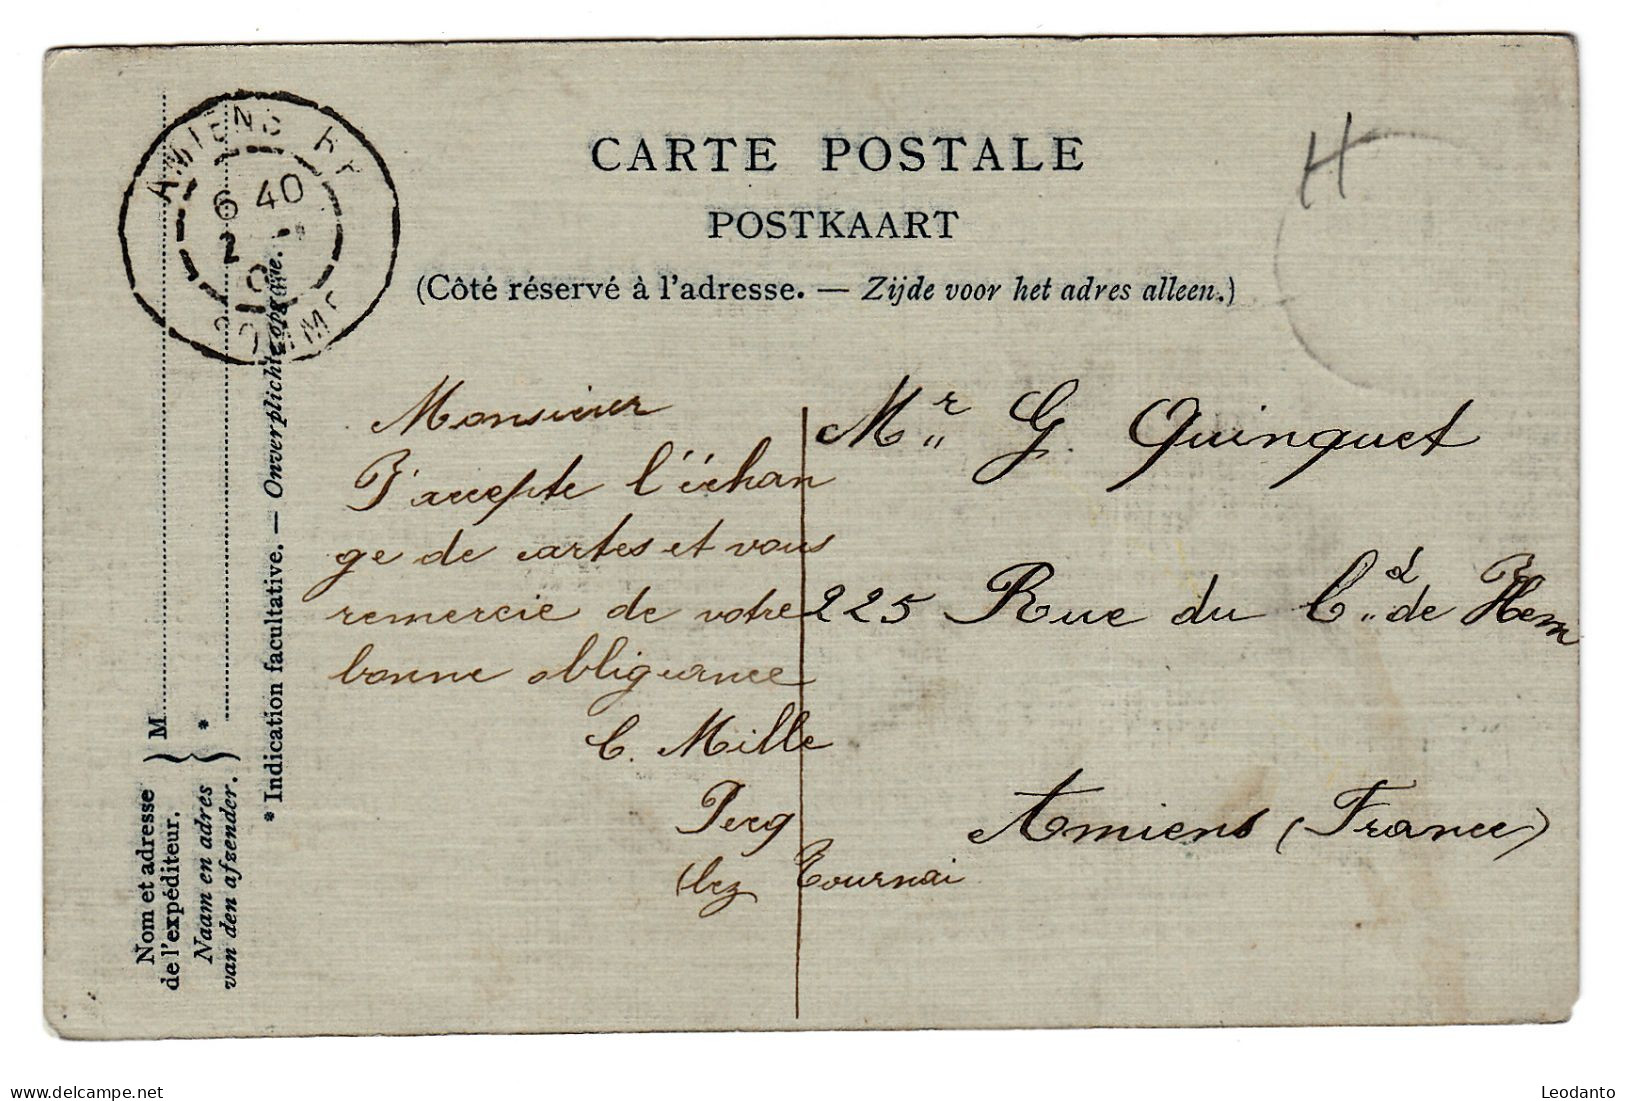 CARTE POSTALE
POSTKAART
(Côté réservé à l'adresse. — Zijde voor het adres alleen.)
AMIENS
6 40
2
10
SOMME
H
Monsieur
J'accepte l'échan
ge de cartes et vous
remercie de votre
bonne obligeance
C. Mille
Pecq
(lez Tournai
Mr G. Quinquet
225 Rue du Cd de Hem
Amiens (France)
Nom et adresse
de l'expéditeur.
M
Naam en adres
van den afzender.
*
* Indication facultative. — Onverplichte opgave.
delcampe.net
Leodanto